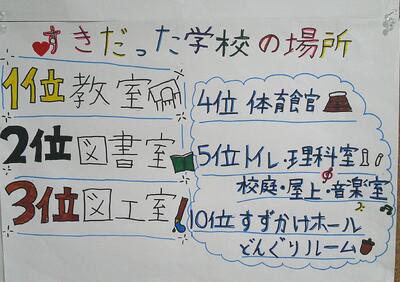 すきだった学校の場所
1位教室
2位図書室
3位図工室
4位体育館
5位トイレ・理科室
校庭・屋上・音楽室
10位すずかけホール
どんぐりルーム